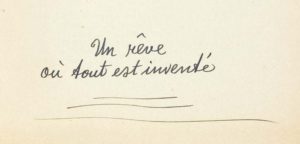 Un rêve
où tout est inventé